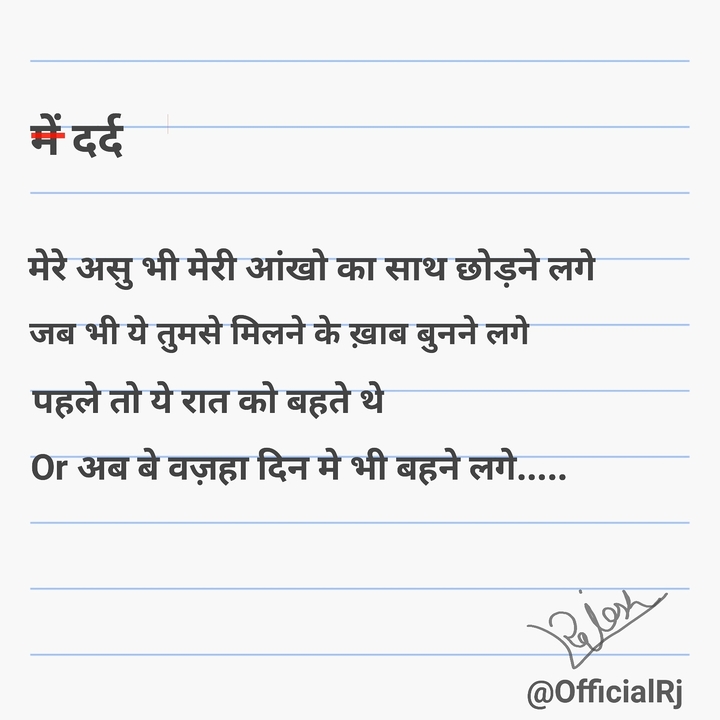 में दर्द
मेरे असु भी मेरी आंखो का साथ छोड़ने लगे
जब भी ये तुमसे मिलने के ख़ाब बुनने लगे
पहले तो ये रात को बहते थे
Or अब बे वज़हा दिन मे भी बहने लगे.....
@OfficialRj